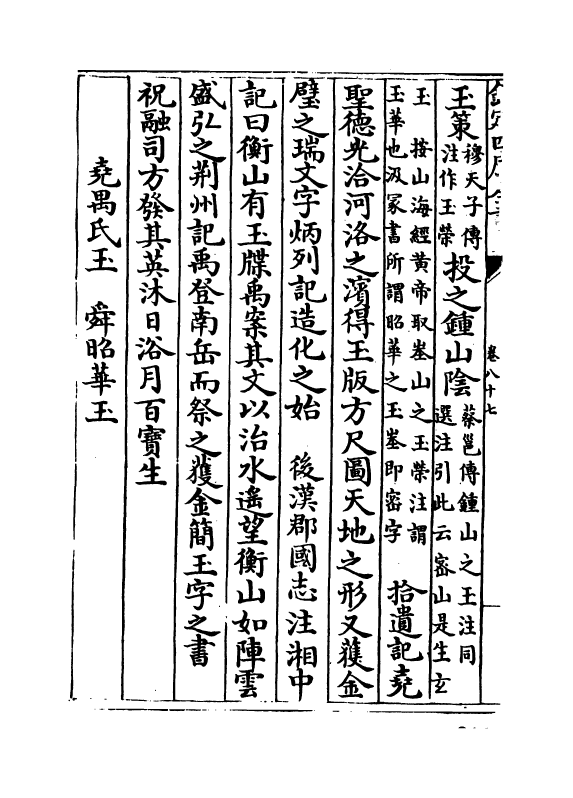 欽定四庫全書
卷八十七
玉策
穆天子傳
注作玉榮
投之鍾山陰
蔡邕傳鍾山之玉注同
選注引此云密山是生玄
玉 按山海經黄帝取峚山之玉榮注謂
玉華也汲冢書所謂昭華之玉峚即密字
拾遺記堯
聖德光洽河洛之濱得玉版方尺圖天地之形又獲金
璧之瑞文字炳列記造化之始 後漢郡國志注湘中
記曰衡山有玉牒禹案其文以治水遙望衡山如陣雲
盛弘之荆州記禹登南岳而祭之獲金簡玉字之書
祝融司方發其英沐日浴月百寶生
堯禺氏玉 舜昭華玉